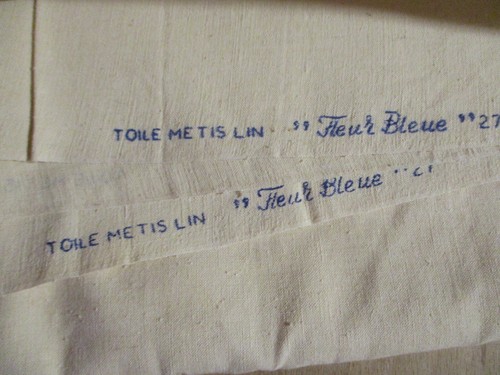 TOILE METIS LIN " Fleur Bleue " 27
TOILE METIS LIN " Fleur Bleue "